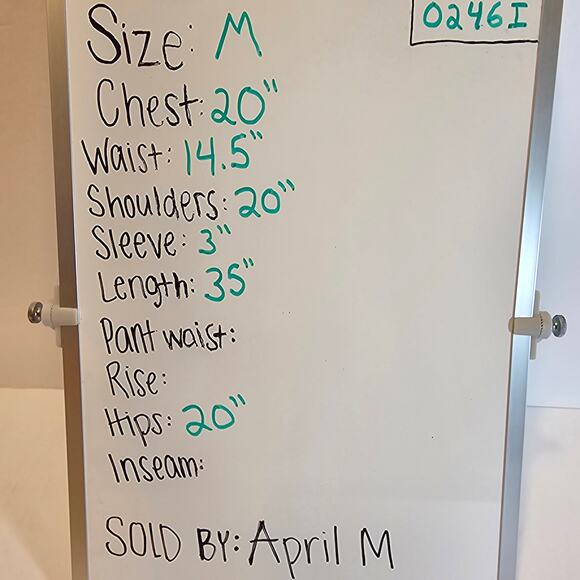 0246I
Size: M
Chest: 20"
Waist: 14.5"
Shoulders: 20"
Sleeve: 3"
Length: 35"
Pant waist:
Rise:
Hips: 20"
Inseam:
SOLD BY: April M